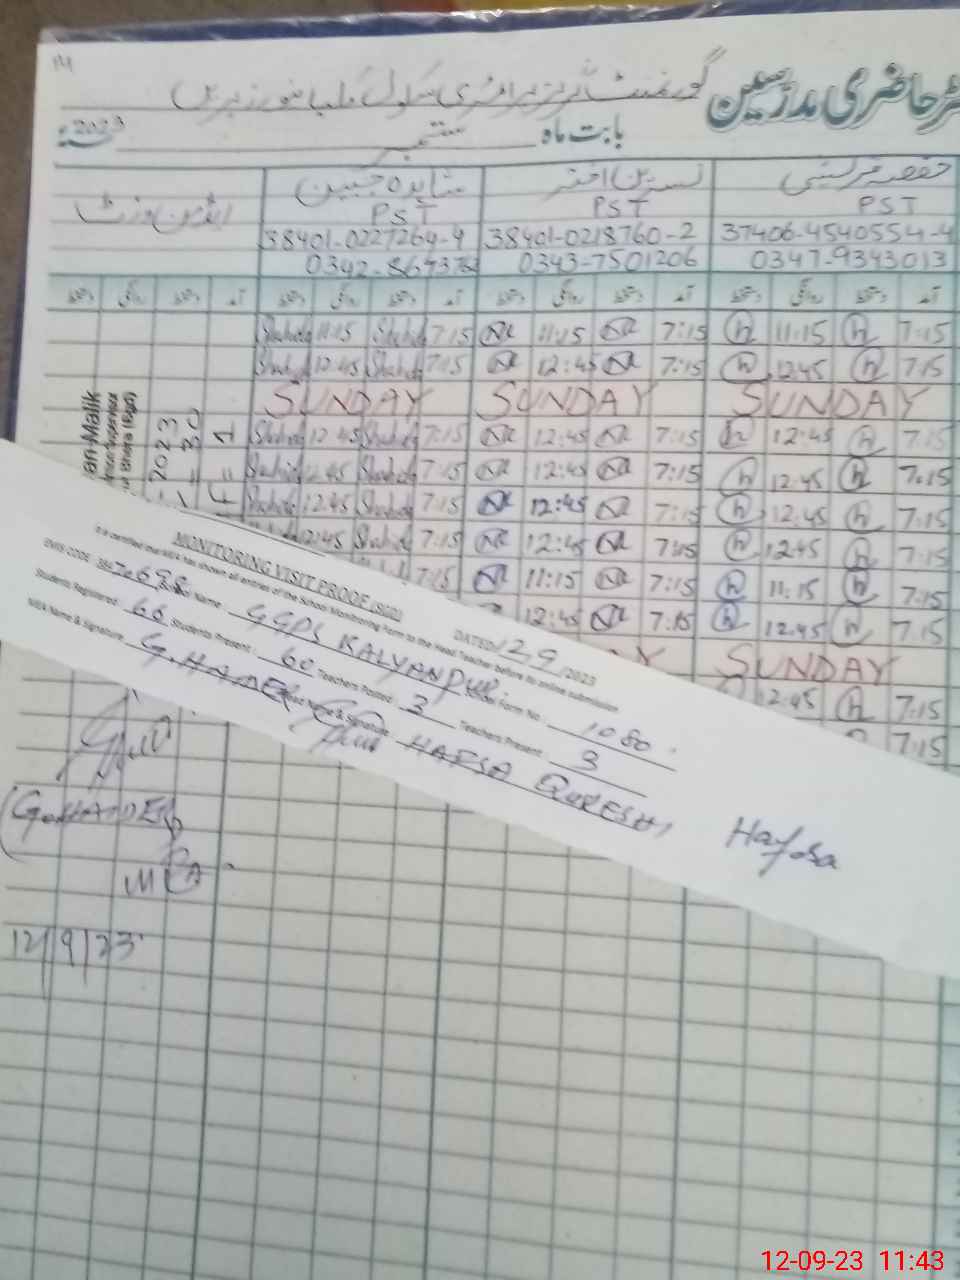 رجسٹر حاضری مدرسین
گورنمنٹ گرلز پرائمری سکول
بابت ماہ ستمبر 2023
حفصہ قریشی نسرین اختر شاہدہ جبین
PST PST PST
37406-4540554-4 38401-0218760-2 38401-0227264-4
0347-9343013 0343-7501206
آمد دستخط روانگی دستخط آمد دستخط روانگی دستخط آمد دستخط روانگی دستخط آمد دستخط روانگی دستخط
Shahida 11:15 Shahida 7:15 11:15 7:15 h 11:15 h 7:15
Shahida 12:45 Shahida 7:15 12:45 7:15 h 12:45 h 7:15
SUNDAY SUNDAY SUNDAY
Shahida 12:45 Shahida 7:15 12:45 7:15 h 12:45 h 7:15
Shahida 12:45 Shahida 7:15 12:45 7:15 h 12:45 h 7:15
Shahida 12:45 Shahida 7:15 12:45 7:15 h 12:45 h 7:15
12:45 Shahida 7:15 12:45 7:15 h 12:45 h 7:15
7:15 11:15 7:15 h 11:15 h 7:15
12:45 7:15 h 12:45 h 7:15
SUNDAY
12:45 h 7:15
7:15
an Malik
Bhera (Sgd)
2023
MONITORING VISIT PROOF (SGD)
DATED: 12, 9, /2023
It is certified that MEA has shown all entries of the School Monitoring Form to the Head Teacher before its online submission
EMIS CODE: 384 School Name: GGPS KALYANPUR. Form No: 1080.
Students Registered: 66 Students Present: 60 Teachers Posted: 3 Teachers Present: 3
MEA Name & Signature G.HAIDER Head Name & Signature: HAFSA QURESHI Hafsa
(G.HAIDER)
MEA
12/9/23
12-09-23 11:43